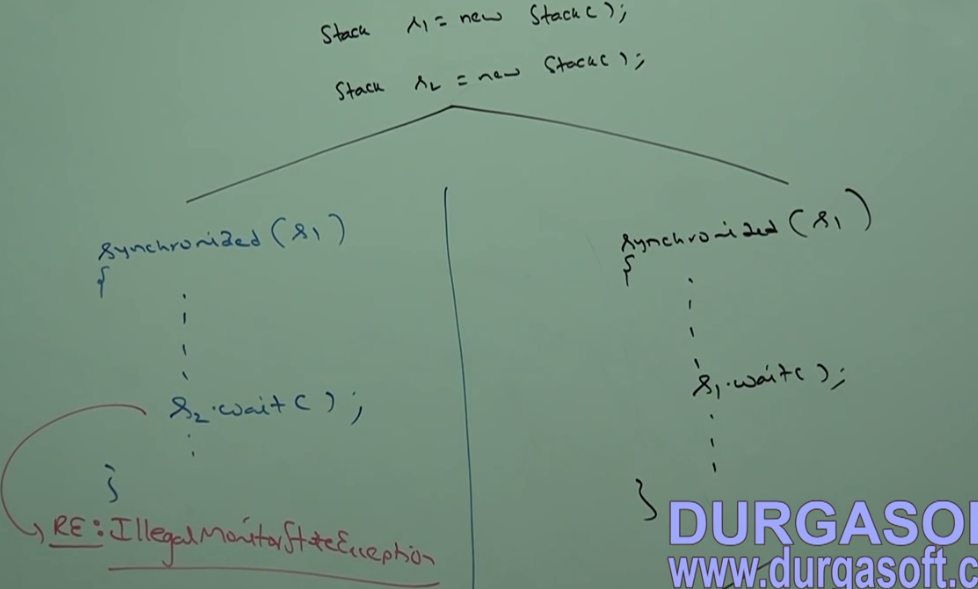 Stack s1 = new Stack();
Stack s2 = new Stack();
synchronized (s1)
{
s2.wait();
}
RE: IllegalMonitorStateException
synchronized (s1)
{
s1.wait();
}
DURGASO
www.durgasoft.c